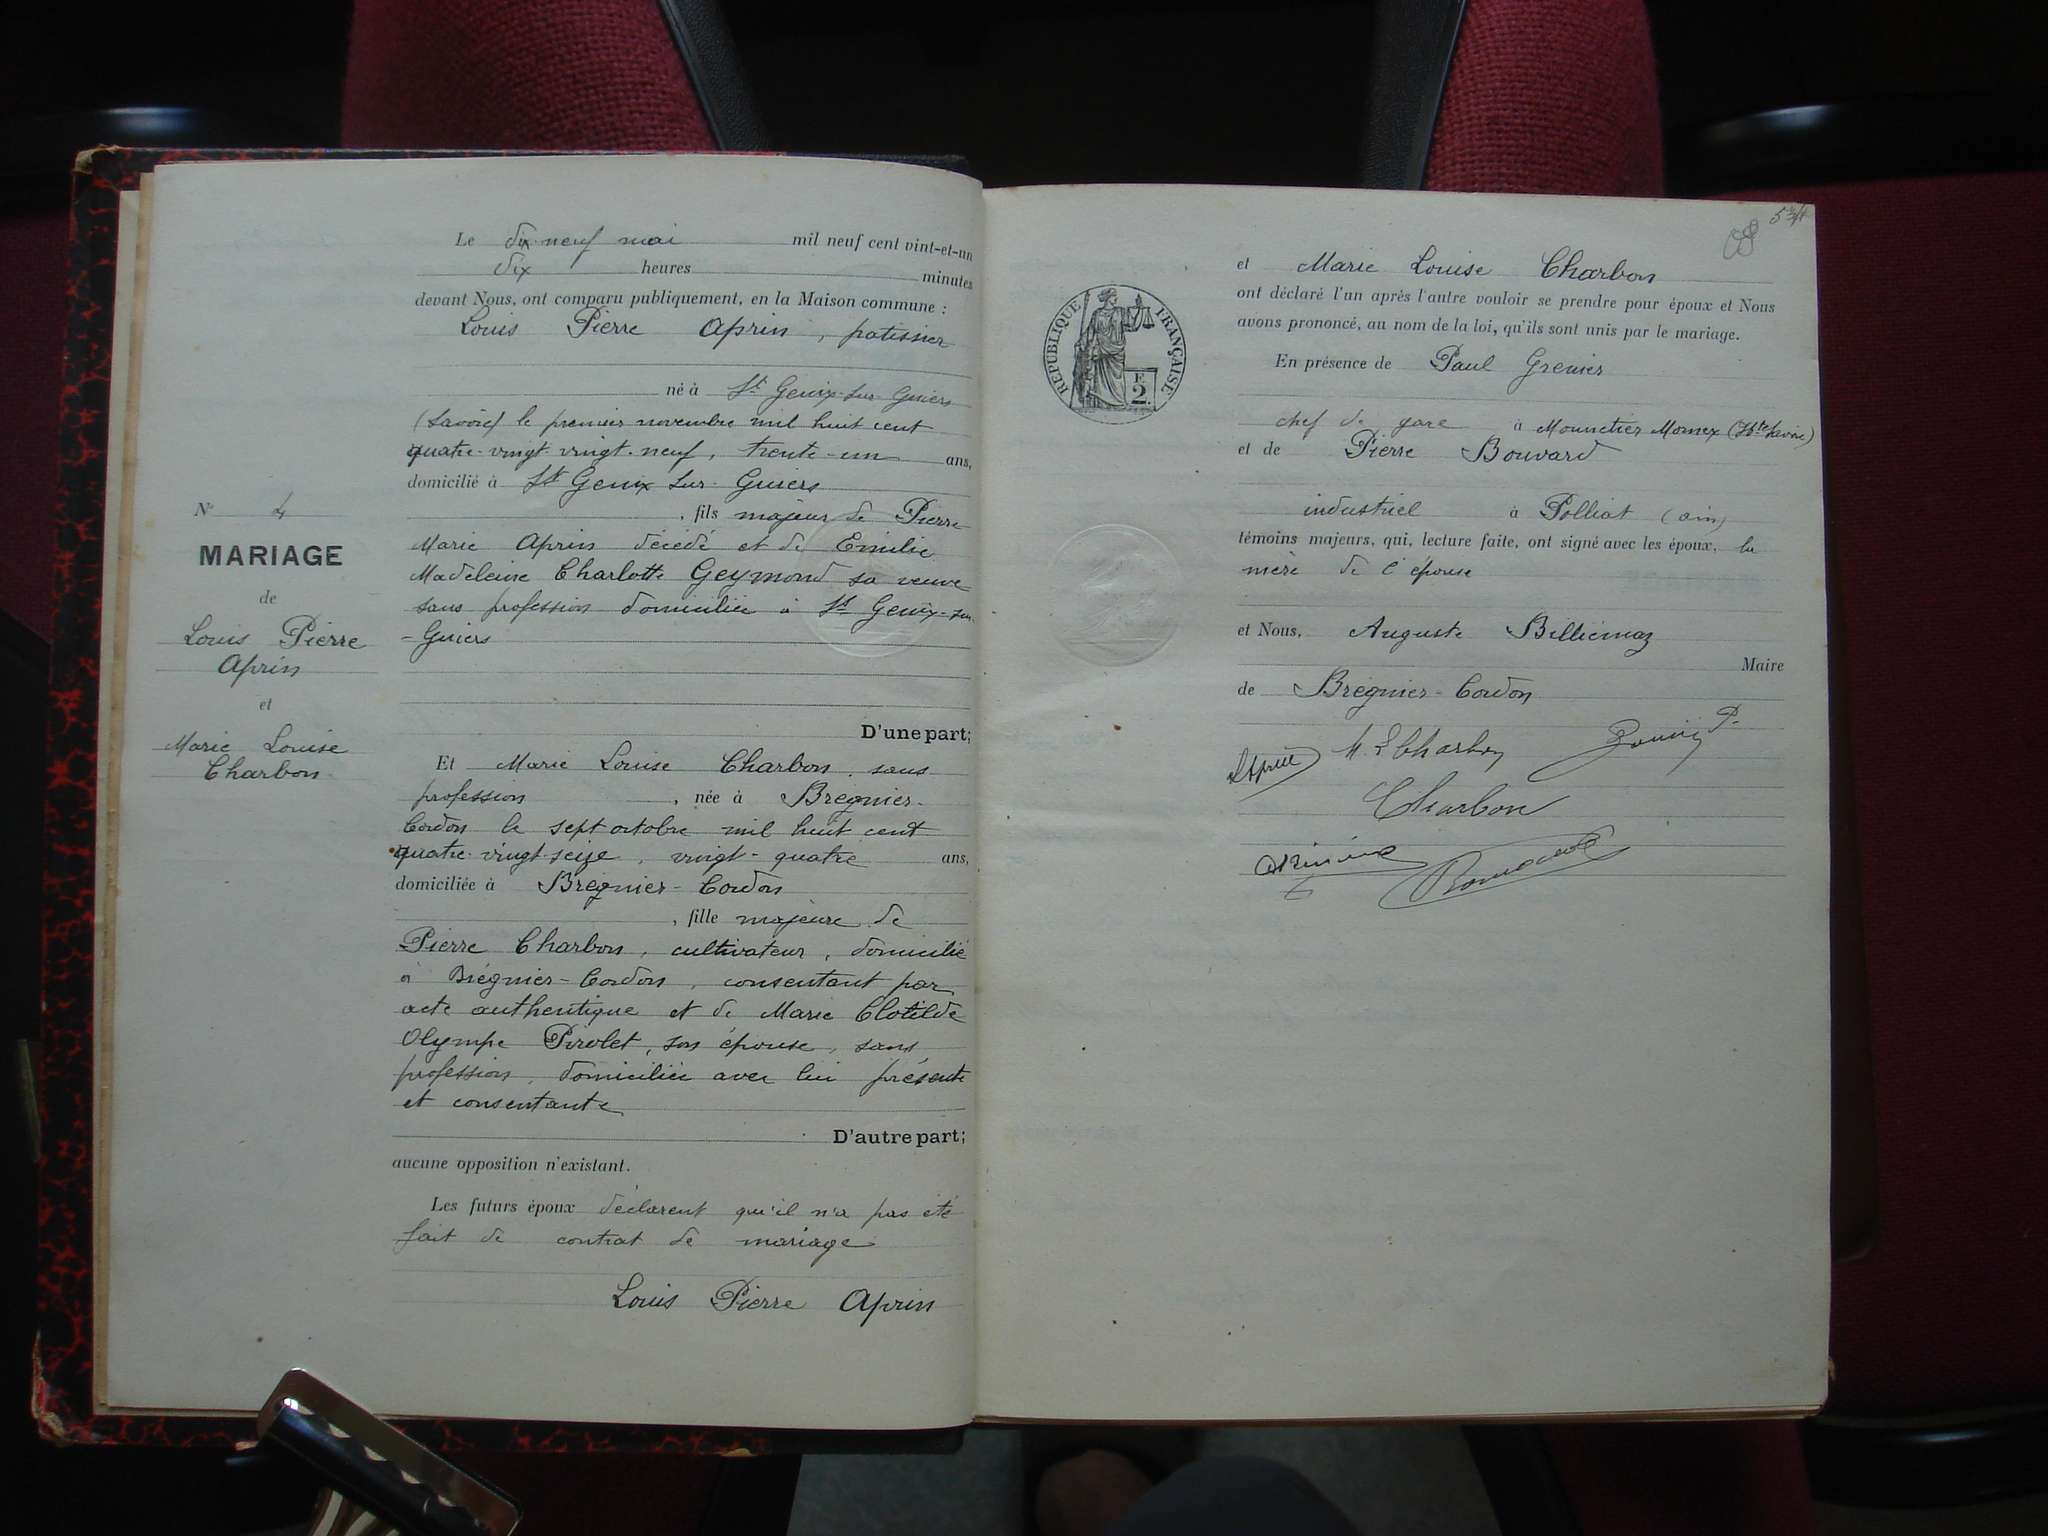 Le dix-neuf mai mil neuf cent vint-et-un
dix heures minutes
devant Nous, ont comparu publiquement, en la Maison commune :
Louis Pierre Aprin, patissier
né à St Genix-sur-Guiers
(Savoie) le premier novembre mil huit cent
quatre-vingt-vingt-neuf, trente-un ans,
domicilié à St Genix sur Guiers
, fils majeur de Pierre
Marie Aprin décedé et de Emilie
Madeleine Charlotte Geymond sa veuve
sans profession domiciliée à St Genix-sur
-Guiers
D'une part;
Et Marie Louise Charbon, sans
profession , née à Brégnier-
Cordon le sept octobre mil huit cent
quatre-vingt-seize, vingt-quatre ans,
domiciliée à Brégnier-Cordon
, fille majeure de
Pierre Charbon, cultivateur, domicilié
à Brégnier-Cordon, consentant par
acte authentique et de Marie Clotilde
Olympe Pirolet, son épouse, sans
profession, domiciliée avec lui présente
et consentante
D'autre part;
aucune opposition n'existant.
Les futurs époux déclarent qu'il n'a pas été
fait de contrat de mariage
Louis Pierre Aprin
N° 4
MARIAGE
de
Louis Pierre
Aprin
et
Marie Louise
Charbon
et Marie Louise Charbon
ont déclaré l'un après l'autre vouloir se prendre pour époux et Nous
avons prononcé, au nom de la loi, qu'ils sont unis par le mariage.
En présence de Paul Grenier
chef de gare à Monnetier Mornex (Hte Savoie)
et de Pierre Bouvard
industriel à Polliat (ain)
témoins majeurs, qui, lecture faite, ont signé avec les époux, la
mère de l'épouse
et Nous, Auguste Billiemaz
Maire
de Brégnier-Cordon
M. L Charbon
Charbon
RÉPUBLIQUE FRANÇAISE
F.
2.